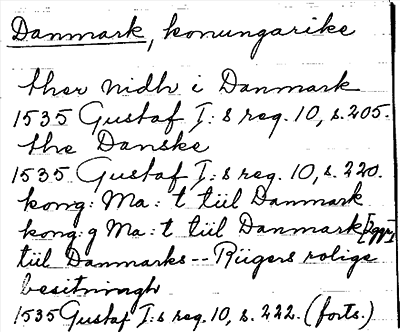 Danmark, konungarike
ther nidh i Danmark
1535 Gustaf I:s reg. 10, s. 205.
the Danske
1535 Gustaf I:s reg. 10, s. 220.
kong: Ma: t tiil Danmark
kong: g Ma: t tiil Danmark [2ggr]
tiil Danmarks -- Riigers rolige
besitningh
1535 Gustaf I:s reg. 10, s. 222. (forts.)